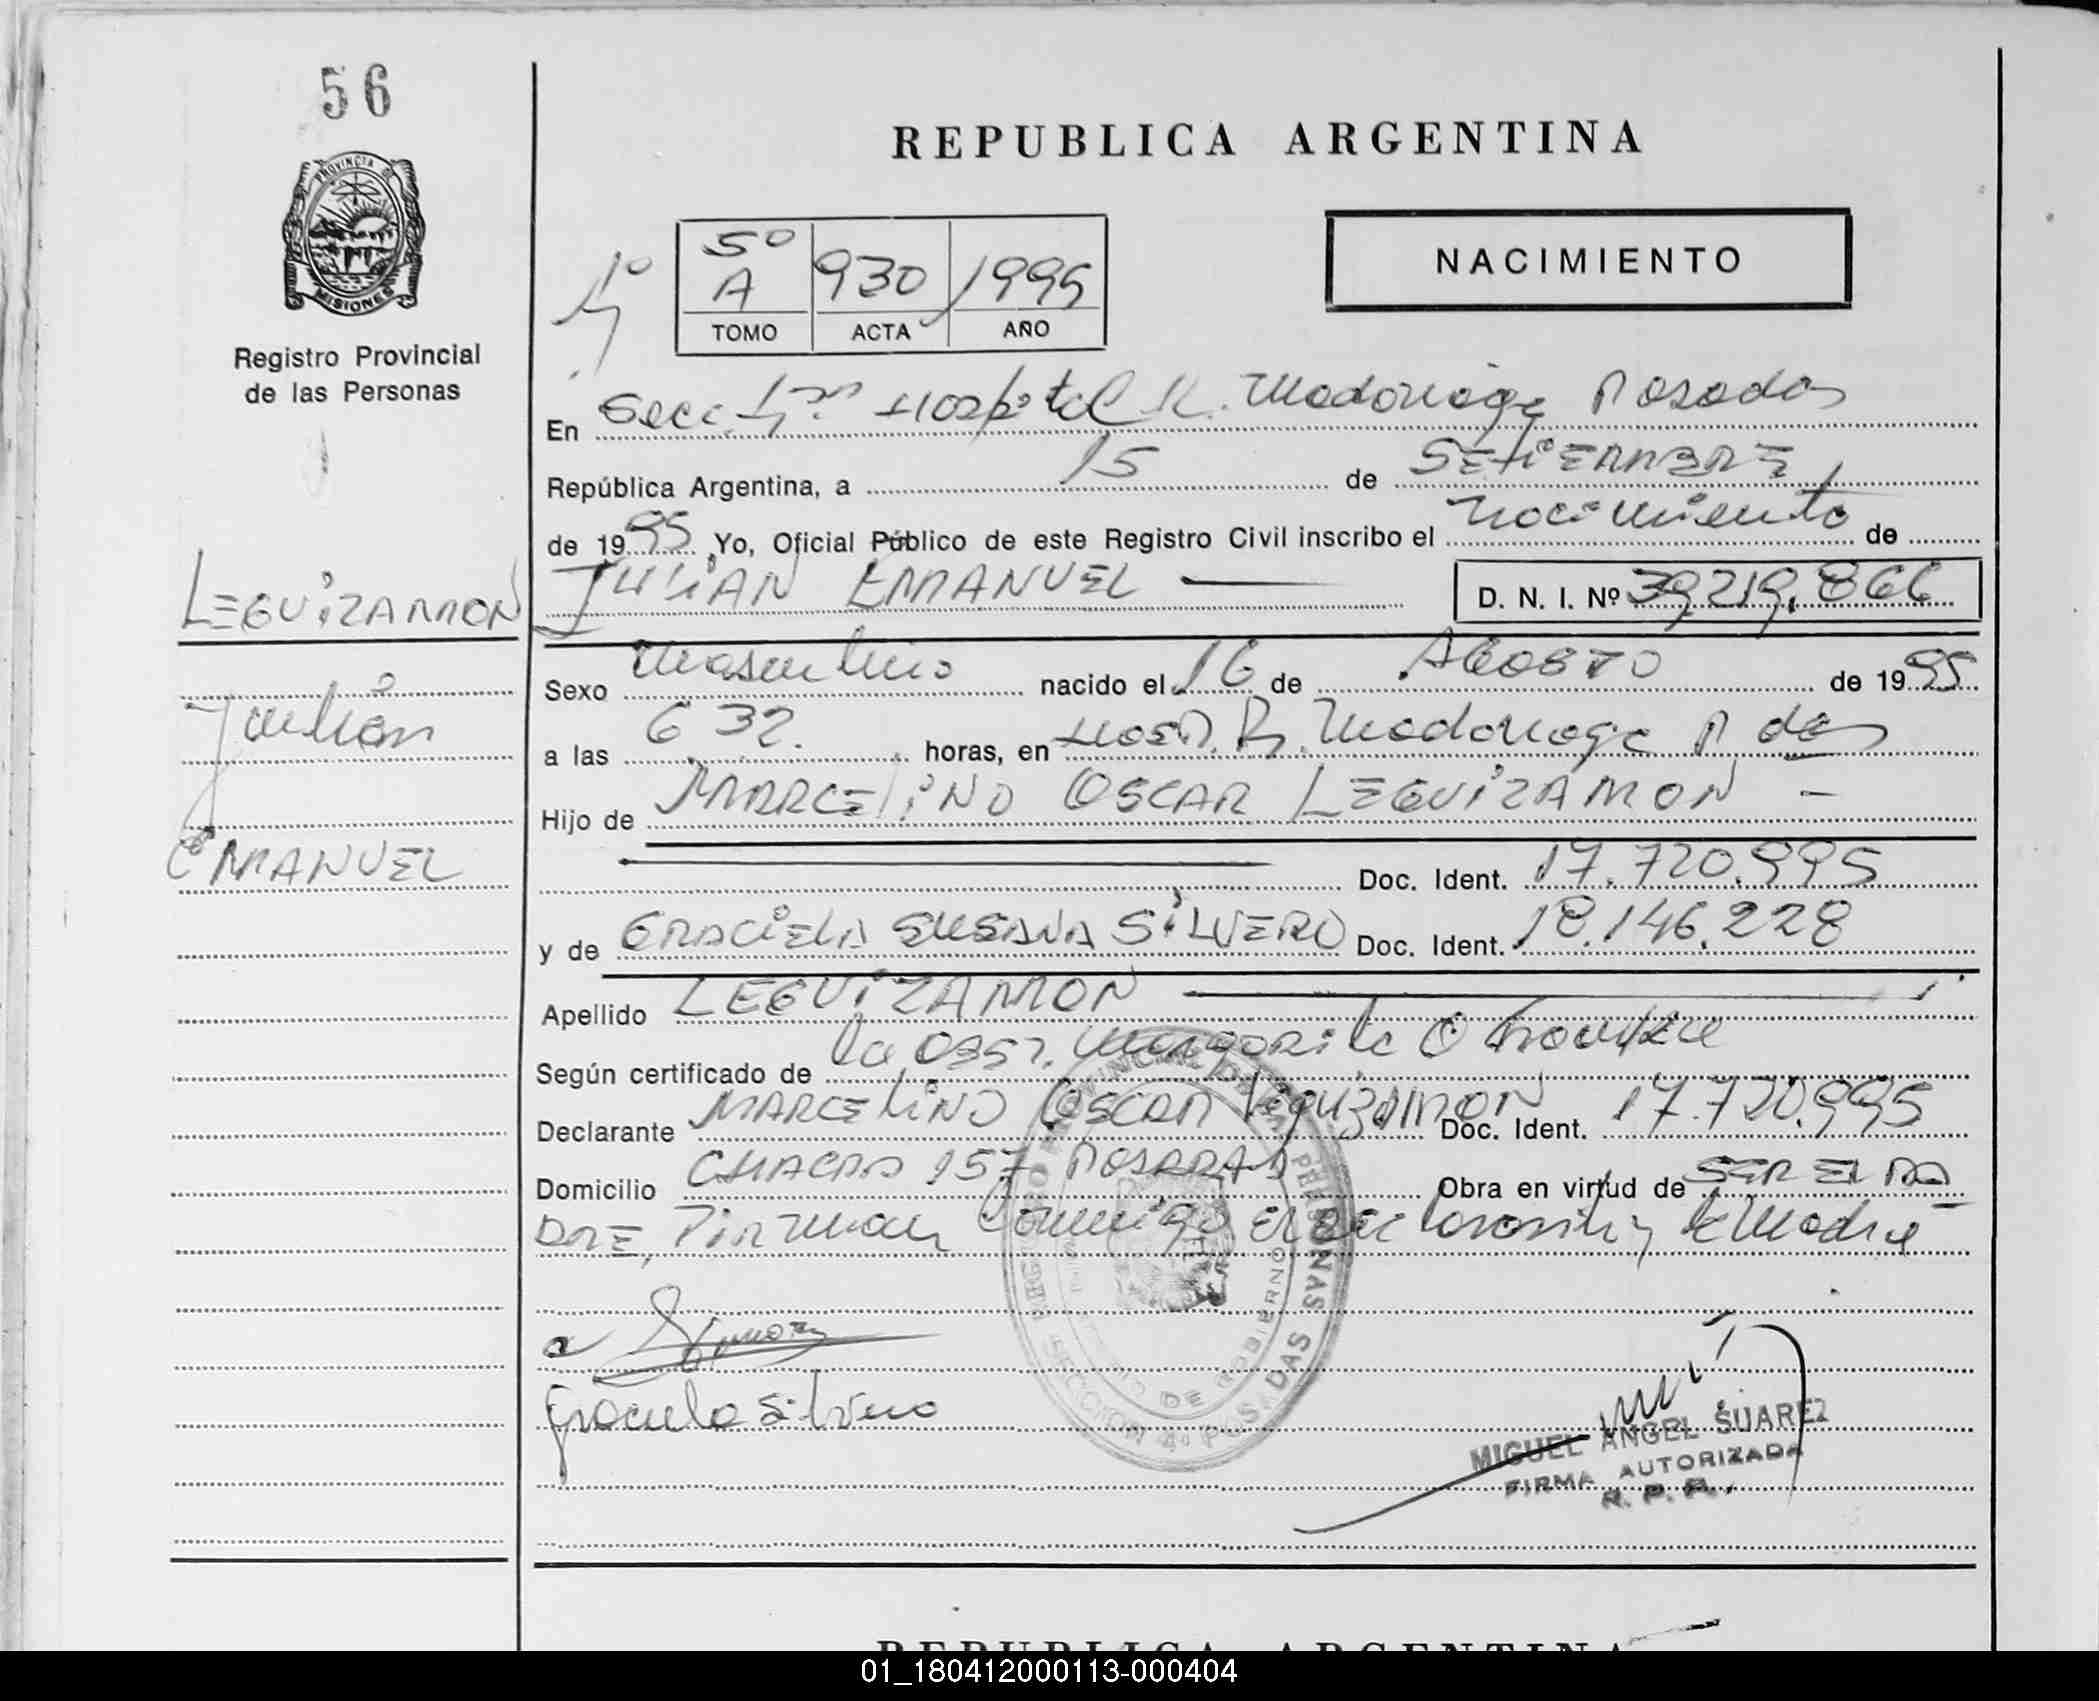 56
PROVINCIA DE
MISIONES
Registro Provincial
de las Personas
LEGUIZAMON
Julián
EMANUEL
REPUBLICA ARGENTINA
NACIMIENTO
4º
5º
A 930 1995
TOMO ACTA AÑO
En Secc. 4ta Hospital R. Madariaga Posadas
República Argentina, a 15 de SETIEMBRE
de 1995 Yo, Oficial Público de este Registro Civil inscribo el nacimiento de
JULIAN EMANUEL D. N. I. Nº 39.219.866
Sexo masculino nacido el 16 de AGOSTO de 1995
a las 6 32. horas, en HOSP. R. Madariaga P das
Hijo de MARCELINO OSCAR LEGUIZAMON -
Doc. Ident. 17.720.995
y de GRACIELA SUSANA SILVERO Doc. Ident. 18.146.228
Apellido LEGUIZAMON
Según certificado de la Obst. Margarita O
Declarante MARCELINO OSCAR LEGUIZAMON Doc. Ident. 17.720.995
Domicilio CHACRA 157 POSADAS Obra en virtud de SER EL PA
DRE, Firman conmigo el declarante y la Madre
Graciela Silvero
REGISTRO PROVINCIAL DE LAS PERSONAS
DE GOBIERNO
SECCION 4º POSADAS
MIGUEL ANGEL SUAREZ
FIRMA AUTORIZADA
R. P. P.
REPUBLICA ARGENTINA
01_180412000113-000404